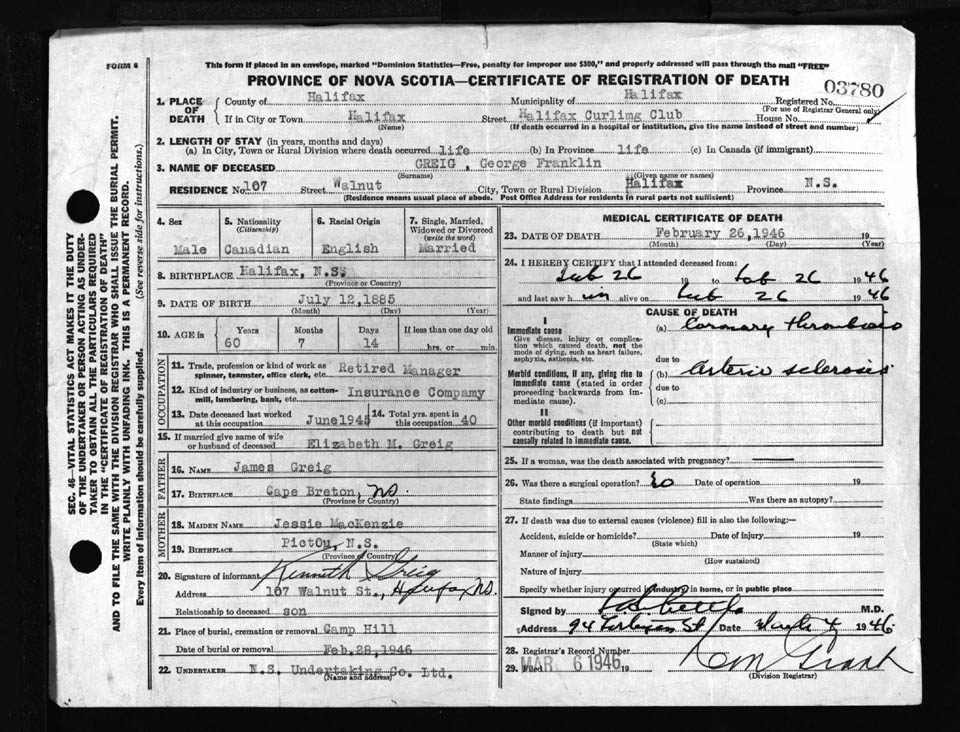 FORM 6
This form if placed in an envelope, marked "Dominion Statistics—Free, penalty for improper use $300," and properly addressed will pass through the mail "FREE"
PROVINCE OF NOVA SCOTIA—CERTIFICATE OF REGISTRATION OF DEATH
03780
1. PLACE OF DEATH
County of Halifax Municipality of Halifax Registered No.
(For use of Registrar General only)
If in City or Town Halifax Street Halifax Curlimg Club House No.
(Name) (If death occurred in a hospital or institution, give the name instead of street and number)
2. LENGTH OF STAY (in years, months and days)
(a) In City, Town or Rural Division where death occurred life (b) In Province life (c) In Canada (if immigrant)
3. NAME OF DECEASED GREIG, George Franklin
(Surname) (Given name or names)
RESIDENCE No. 107 Street Walnut City, Town or Rural Division Halifax Province N.S.
(Residence means usual place of abode. Post Office Address for residents in rural parts not sufficient)
4. Sex
Male
5. Nationality
(Citizenship)
Canadian
6. Racial Origin
English
7. Single, Married, Widowed or Divorced
(write the word)
Married
8. BIRTHPLACE Halifax, N.S.
(Province or Country)
9. DATE OF BIRTH July 12,1885
(Month) (Day) (Year)
10. AGE in Years Months Days If less than one day old
60 7 14 hrs. or min.
OCCUPATION
11. Trade, profession or kind of work as spinner, teamster, office clerk, etc. Retired Manager
12. Kind of industry or business, as cotton-mill, lumbering, bank, etc. Insurance Compamy
13. Date deceased last worked at this occupation June1945
14. Total yrs. spent in this occupation 40
15. If married give name of wife or husband of deceased Elizabeth M. Greig
FATHER
16. NAME James Greig
17. BIRTHPLACE Cape Breton, NS.
(Province or Country)
MOTHER
18. MAIDEN NAME Jessie MacKenzie
19. BIRTHPLACE PictOu, N.S.
(Province or Country)
20. Signature of informant Kenneth Greig
Address 107 Walnut St., Halifax NS.
Relationship to deceased son
21. Place of burial, cremation or removal Camp Hill
Date of burial or removal Feb.28,1946
22. UNDERTAKER N.S. Undertaking Co. Ltd.
(Name and address)
MEDICAL CERTIFICATE OF DEATH
23. DATE OF DEATH February 26,1946 19
(Month) (Day) (Year)
24. I HEREBY CERTIFY that I attended deceased from:
Feb 26 19 to Feb 26 1946
and last saw him alive on Feb 26 1946
CAUSE OF DEATH
I
Immediate cause
Give disease, injury or complication which caused death, not the mode of dying, such as heart failure, asphyxia, asthenia, etc.
(a) Coronary thrombosis
due to
Morbid conditions, if any, giving rise to immediate cause (stated in order proceeding backwards from immediate cause).
(b) Arterio sclerosis
due to
(c)
II
Other morbid conditions (if important) contributing to death but not causally related to immediate cause.
25. If a woman, was the death associated with pregnancy?
26. Was there a surgical operation? No Date of operation 19
State findings Was there an autopsy?
27. If death was due to external causes (violence) fill in also the following:—
Accident, suicide or homicide? Date of injury 19
(State which)
Manner of injury
(How sustained)
Nature of injury
Specify whether injury occurred in industry, in home, or in public place
Signed by M.D.
Address 94 St Date March 4 1946
28. Registrar's Record Number
29. Filed MAR 6 1946 19
(Division Registrar)
SEC. 46—VITAL STATISTICS ACT MAKES IT THE DUTY
OF THE UNDERTAKER OR PERSON ACTING AS UNDERTAKER TO OBTAIN ALL THE PARTICULARS REQUIRED
IN THE "CERTIFICATE OF REGISTRATION OF DEATH"
AND TO FILE THE SAME WITH THE DIVISION REGISTRAR WHO SHALL ISSUE THE BURIAL PERMIT.
WRITE PLAINLY WITH UNFADING INK. THIS IS A PERMANENT RECORD.
Every item of information should be carefully supplied. (See reverse side for instructions.)